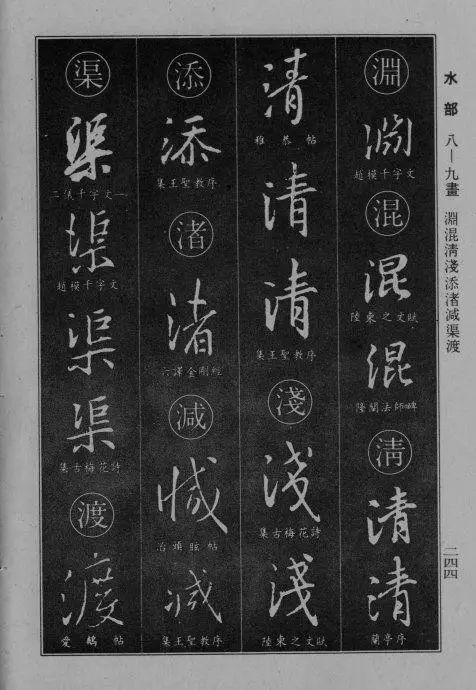 水部 八—九畫 淵混清淺添渚減渠渡
二四四
淵
淵
趙模千字文
混
混
陸柬之文賦
混
隆闡法師碑
清
清
清
蘭亭序
清
稚恭帖
清
清
集王聖教序
淺
淺
集古梅花詩
淺
陸柬之文賦
添
添
集王聖教序
渚
渚
六譯金剛經
減
減
治頭眩帖
減
集王聖教序
渠
渠
二儀千字文
渠
趙模千字文
渠
渠
集古梅花詩
渡
渡
愛鵝帖